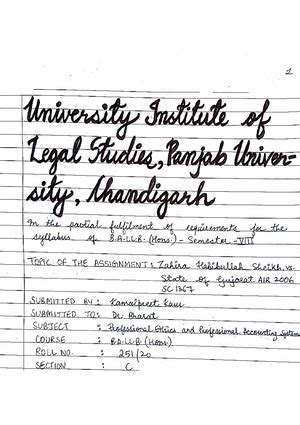 1
University Institute of
Legal Studies, Panjab Univer-
sity, Chandigarh
In the partial fulfilment of requirements for the
syllabus of B.A.LL.B. (Hons.) - Semester - VIII
TOPIC OF THE ASSIGNMENT : Zahira Habibullah Sheikh vs.
State of Gujarat AIR 2006
SC 1367
SUBMITTED BY : Kamalpreet Kaur
SUBMITTED TO : Dr. Bharat
SUBJECT : Professional Ethics and Professional Accounting System
COURSE : B.A.LL.B. (Hons)
ROLL NO. : 251/20
SECTION : C